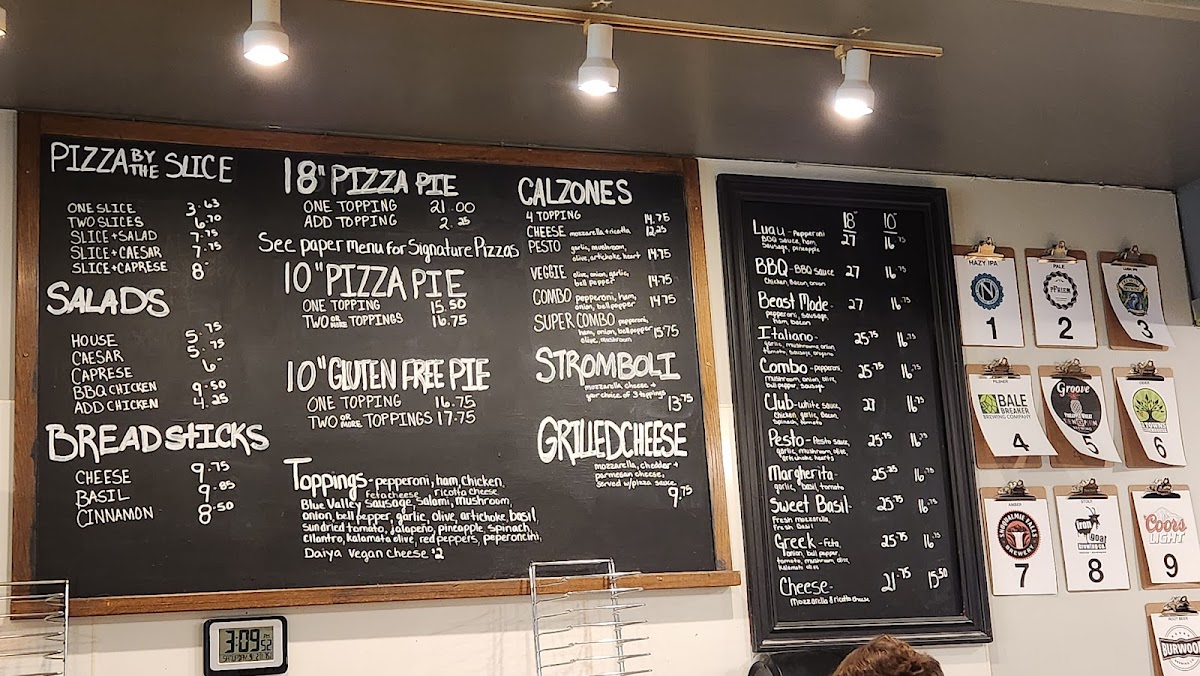 PIZZA BY THE SLICE
ONE SLICE 3.63
TWO SLICES 6.70
SLICE + SALAD 7.75
SLICE + CAESAR 7.75
SLICE + CAPRESE 8
SALADS
HOUSE 5.75
CAESAR 5.75
CAPRESE 6-
BBQ CHICKEN 9.50
ADD CHICKEN 4.25
BREADSTICKS
CHEESE 9.75
BASIL 9.85
CINNAMON 8.50
18" PIZZA PIE
ONE TOPPING 21.00
ADD TOPPING 2.25
See paper menu for Signature Pizzas
10" PIZZA PIE
ONE TOPPING 15.50
TWO OR MORE TOPPINGS 16.75
10" GLUTEN FREE PIE
ONE TOPPING 16.75
TWO OR MORE TOPPINGS 17.75
Toppings - pepperoni, ham, chicken,
feta cheese ricotta cheese
Blue Valley sausage, salami, mushroom,
onion, bell pepper, garlic, olive, artichoke, basil,
sundried tomato, jalapeño, pineapple, spinach,
cilantro, kalamata olive, red peppers, peperoncini,
Daiya Vegan cheese $2
CALZONES
4 TOPPING 14.75
CHEESE mozzarella + ricotta 12.25
PESTO garlic, mushroom,
olive, artichoke heart 14.75
VEGGIE olive, onion, garlic,
bell pepper 14.75
COMBO pepperoni, ham,
onion, bell pepper 14.75
SUPER COMBO pepperoni,
ham, onion, bell pepper 15.75
olive, mushroom
STROMBOLI
mozzarella cheese +
your choice of 3 toppings
13.75
GRILLED CHEESE
mozzarella, chedder +
parmesan cheese,
served w/pizza sauce
9.75
3:09 52
18" 10"
Luau - Pepperoni
BBQ sauce, ham, 27 16.75
Sausage, pineapple
BBQ - BBQ sauce 27 16.75
Chicken, Bacon, onion
Beast Mode - 27 16.75
pepperoni, sausage,
ham, bacon
Italiano - 25.75 16.75
garlic, mushrooms, onion
tomato, sausage, oregano
Combo - pepperoni, 25.75 16.75
mushroom, onion, olive,
bell pepper, sausage
Club - white sauce, 27 16.75
Chicken, garlic, bacon,
Spinach, tomato
Pesto - Pesto sauce, 25.75 16.75
garlic, mushroom, olive,
artichoke hearts
Margherita - 25.25 16.75
garlic, basil, tomato
Sweet Basil - 25.75 16.75
Fresh mozzarella,
Fresh Basil
Greek - Feta, 25.75 16.75
onion, bell pepper,
tomato, mushroom, olive,
kalamata olive
Cheese - 21.75 15.50
Mozzarella & ricotta cheese
HAZY IPA
N
1
PALE
pFRIEM
2
3
PILSNER
BALE
BREAKER
BREWING COMPANY
4
Groove
5
CIDER
6
AMBER
SNOQUALMIE FALLS
BREWERY
7
STOUT
Iron
goat
brewing co.
8
Coors
LIGHT
9
ROOT BEER
BURWOOD